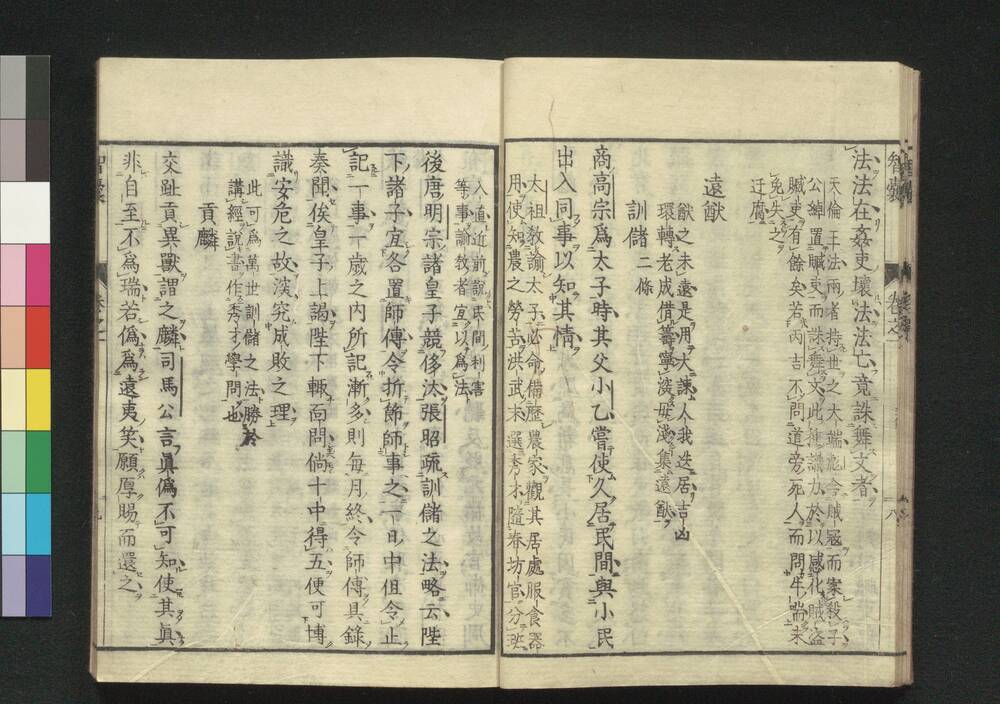 法法在姦吏壞法法亡竟誅舞文者
天倫王法兩者持世之大端
公綽置贓吏而誅舞文此種識力於以感化賊盜
贓吏有餘矣若丙吉不問道旁死人而問牛喘未
免失之
迂腐
遠猷
猷之未遠是用大諫人我迭居吉凶
環轉老成借籌寧深毋淺集遠猷
訓儲二條
商高宗爲太子時其父小乙嘗使久居民間與小民
出入同事以知其情
太祖教諭太子必命備歷農家觀其居處服食器
用使知農之勞苦洪武末選秀才隨春坊官分班
入直近前說民間利害
等事諭教者宜以爲法
後唐明宗諸皇子競侈汰張昭疏訓儲之法略云陛
下諸子宜各置師傅令折節師事之一日中但令止
記一事一歲之內所記漸多則每月終令師傅具錄
奏聞俟皇子上謁陛下輒面問倘十中得五便可博
識安危之故深究成敗之理
此可爲萬世訓儲之法勝於
講經說書作秀才學問也
貢麟
交趾貢異獸謂之麟司馬公言眞僞不可知使其眞
非自至不爲瑞若僞爲遠夷笑願厚賜而還之